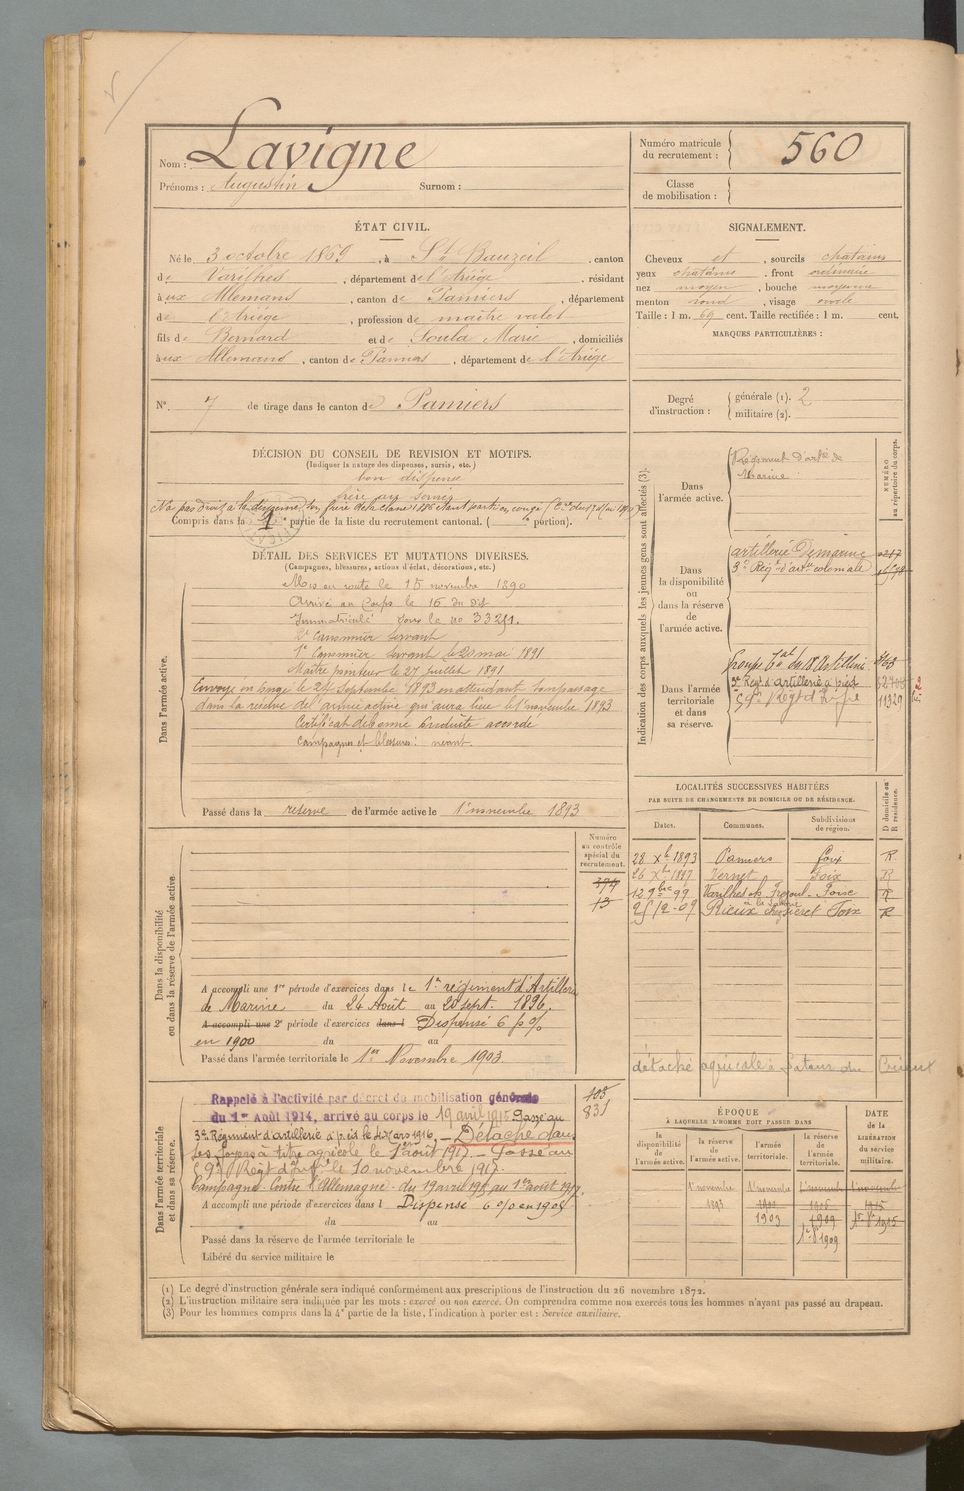 Nom : Lavigne
Prénoms : Augustin Surnom :
Numéro matricule du recrutement : 560
Classe de mobilisation :
ÉTAT CIVIL.
Né le 3 octobre 1869, à St Bauzeil. canton
de Varilhes, département de l'Ariége. résidant
à ux Allemans, canton de Pamiers, département
de l'Ariège, profession de maître valet
fils de Bernard et de Soula Marie, domiciliés
à ux Allemans, canton de Pamiers, département de l'Ariége
SIGNALEMENT.
Cheveux et, sourcils chatains
yeux chatains. front ordinaire
nez moyen, bouche moyenne
menton rond, visage ovale
Taille : 1 m. 69 cent. Taille rectifiée : 1 m. cent.
MARQUES PARTICULIÈRES :
N° 7 de tirage dans le canton de Pamiers
Degré d'instruction : générale (1). 2
militaire (2).
DÉCISION DU CONSEIL DE REVISION ET MOTIFS.
(Indiquer la nature des dispenses, sursis, etc.)
bon dispensé
frère au service
Compris dans la 1e partie de la liste du recrutement cantonal. ( e portion).
DÉTAIL DES SERVICES ET MUTATIONS DIVERSES.
(Campagnes, blessures, actions d'éclat, décorations, etc.)
Dans l'armée active.
Mis en route le 15 novembre 1890
Arrivé au Corps le 16 du dit
Immatriculé sous le no 33251.
2e Canonnier servant
1e Canonnier servant le 20 mai 1891
Maître pointeur le 27 juillet 1891
Envoyé en congé le 24 Septembre 1893 en attendant son passage
dans la réserve de l'armée active qui aura lieu le 1er novembre 1893
Certificat de bonne conduite accordé
Campagnes et blessures : néant.
Passé dans la reserve de l'armée active le 1er novembre 1893
Indication des corps auxquels les jeunes gens sont affectés (3).
NUMÉRO au répertoire du corps.
Dans l'armée active.
Régiment d'artie de
Marine
Dans la disponibilité ou dans la réserve de l'armée active.
artillerie de marine
3e Régt d'artie coloniale
Dans l'armée territoriale et dans sa réserve.
3e Régt d'artillerie à pied
59e Régt d'Infie 11329
LOCALITÉS SUCCESSIVES HABITÉES
PAR SUITE DE CHANGEMENTS DE DOMICILE OU DE RÉSIDENCE.
Dates. Communes. Subdivisions de région. D domicile ou R résidence.
28 Xbre 1893 Pamiers Foix R
26 Xbre 1897 Vernet Foix R
12 9bre 99 Varilhes Foix R
25-12-09 Rieux Foix R
détaché agricole
Dans la disponibilité ou dans la réserve de l'armée active
Numéro au contrôle spécial du recrutement.
374
13
A accompli une 1re période d'exercices dans le 1er régiment d'Artillerie
de Marine du 24 Août au 20 sept. 1896.
A accompli une 2e période d'exercices dans l Dispensé 6 p %
en 1900 du au
Passé dans l'armée territoriale le 1er Novembre 1903.
Dans l'armée territoriale et dans sa réserve.
Rappelé à l'activité par décret de mobilisation générale
du 1er Août 1914, arrivé au corps le 19 avril 1915. Passé au
3e Régiment d'artillerie à pied le 4 Mars 1916. - Détaché dans
ses foyers à titre agricole le 1er août 1917. - Passé au
59e Régt d'Infie le 10 novembre 1917.
Campagne Contre l'Allemagne du 19 avril 1915 au 1er août 1917.
A accompli une période d'exercices dans l Dispensé 6 0/0 en 1905
du au
Passé dans la réserve de l'armée territoriale le
Libéré du service militaire le
831
ÉPOQUE
À LAQUELLE L'HOMME DOIT PASSER DANS
la disponibilité de l'armée active. la réserve de l'armée active. l'armée territoriale. la réserve de l'armée territoriale.
DATE de la LIBÉRATION du service militaire.
1er novembre 1er novembre 1er novembre 1er novembre
1893
1903 1909
(1) Le degré d'instruction générale sera indiqué conformément aux prescriptions de l'instruction du 26 novembre 1872.
(2) L'instruction militaire sera indiquée par les mots : exercé ou non exercé. On comprendra comme non exercés tous les hommes n'ayant pas passé au drapeau.
(3) Pour les hommes compris dans la 4e partie de la liste, l'indication à porter est : Service auxiliaire.